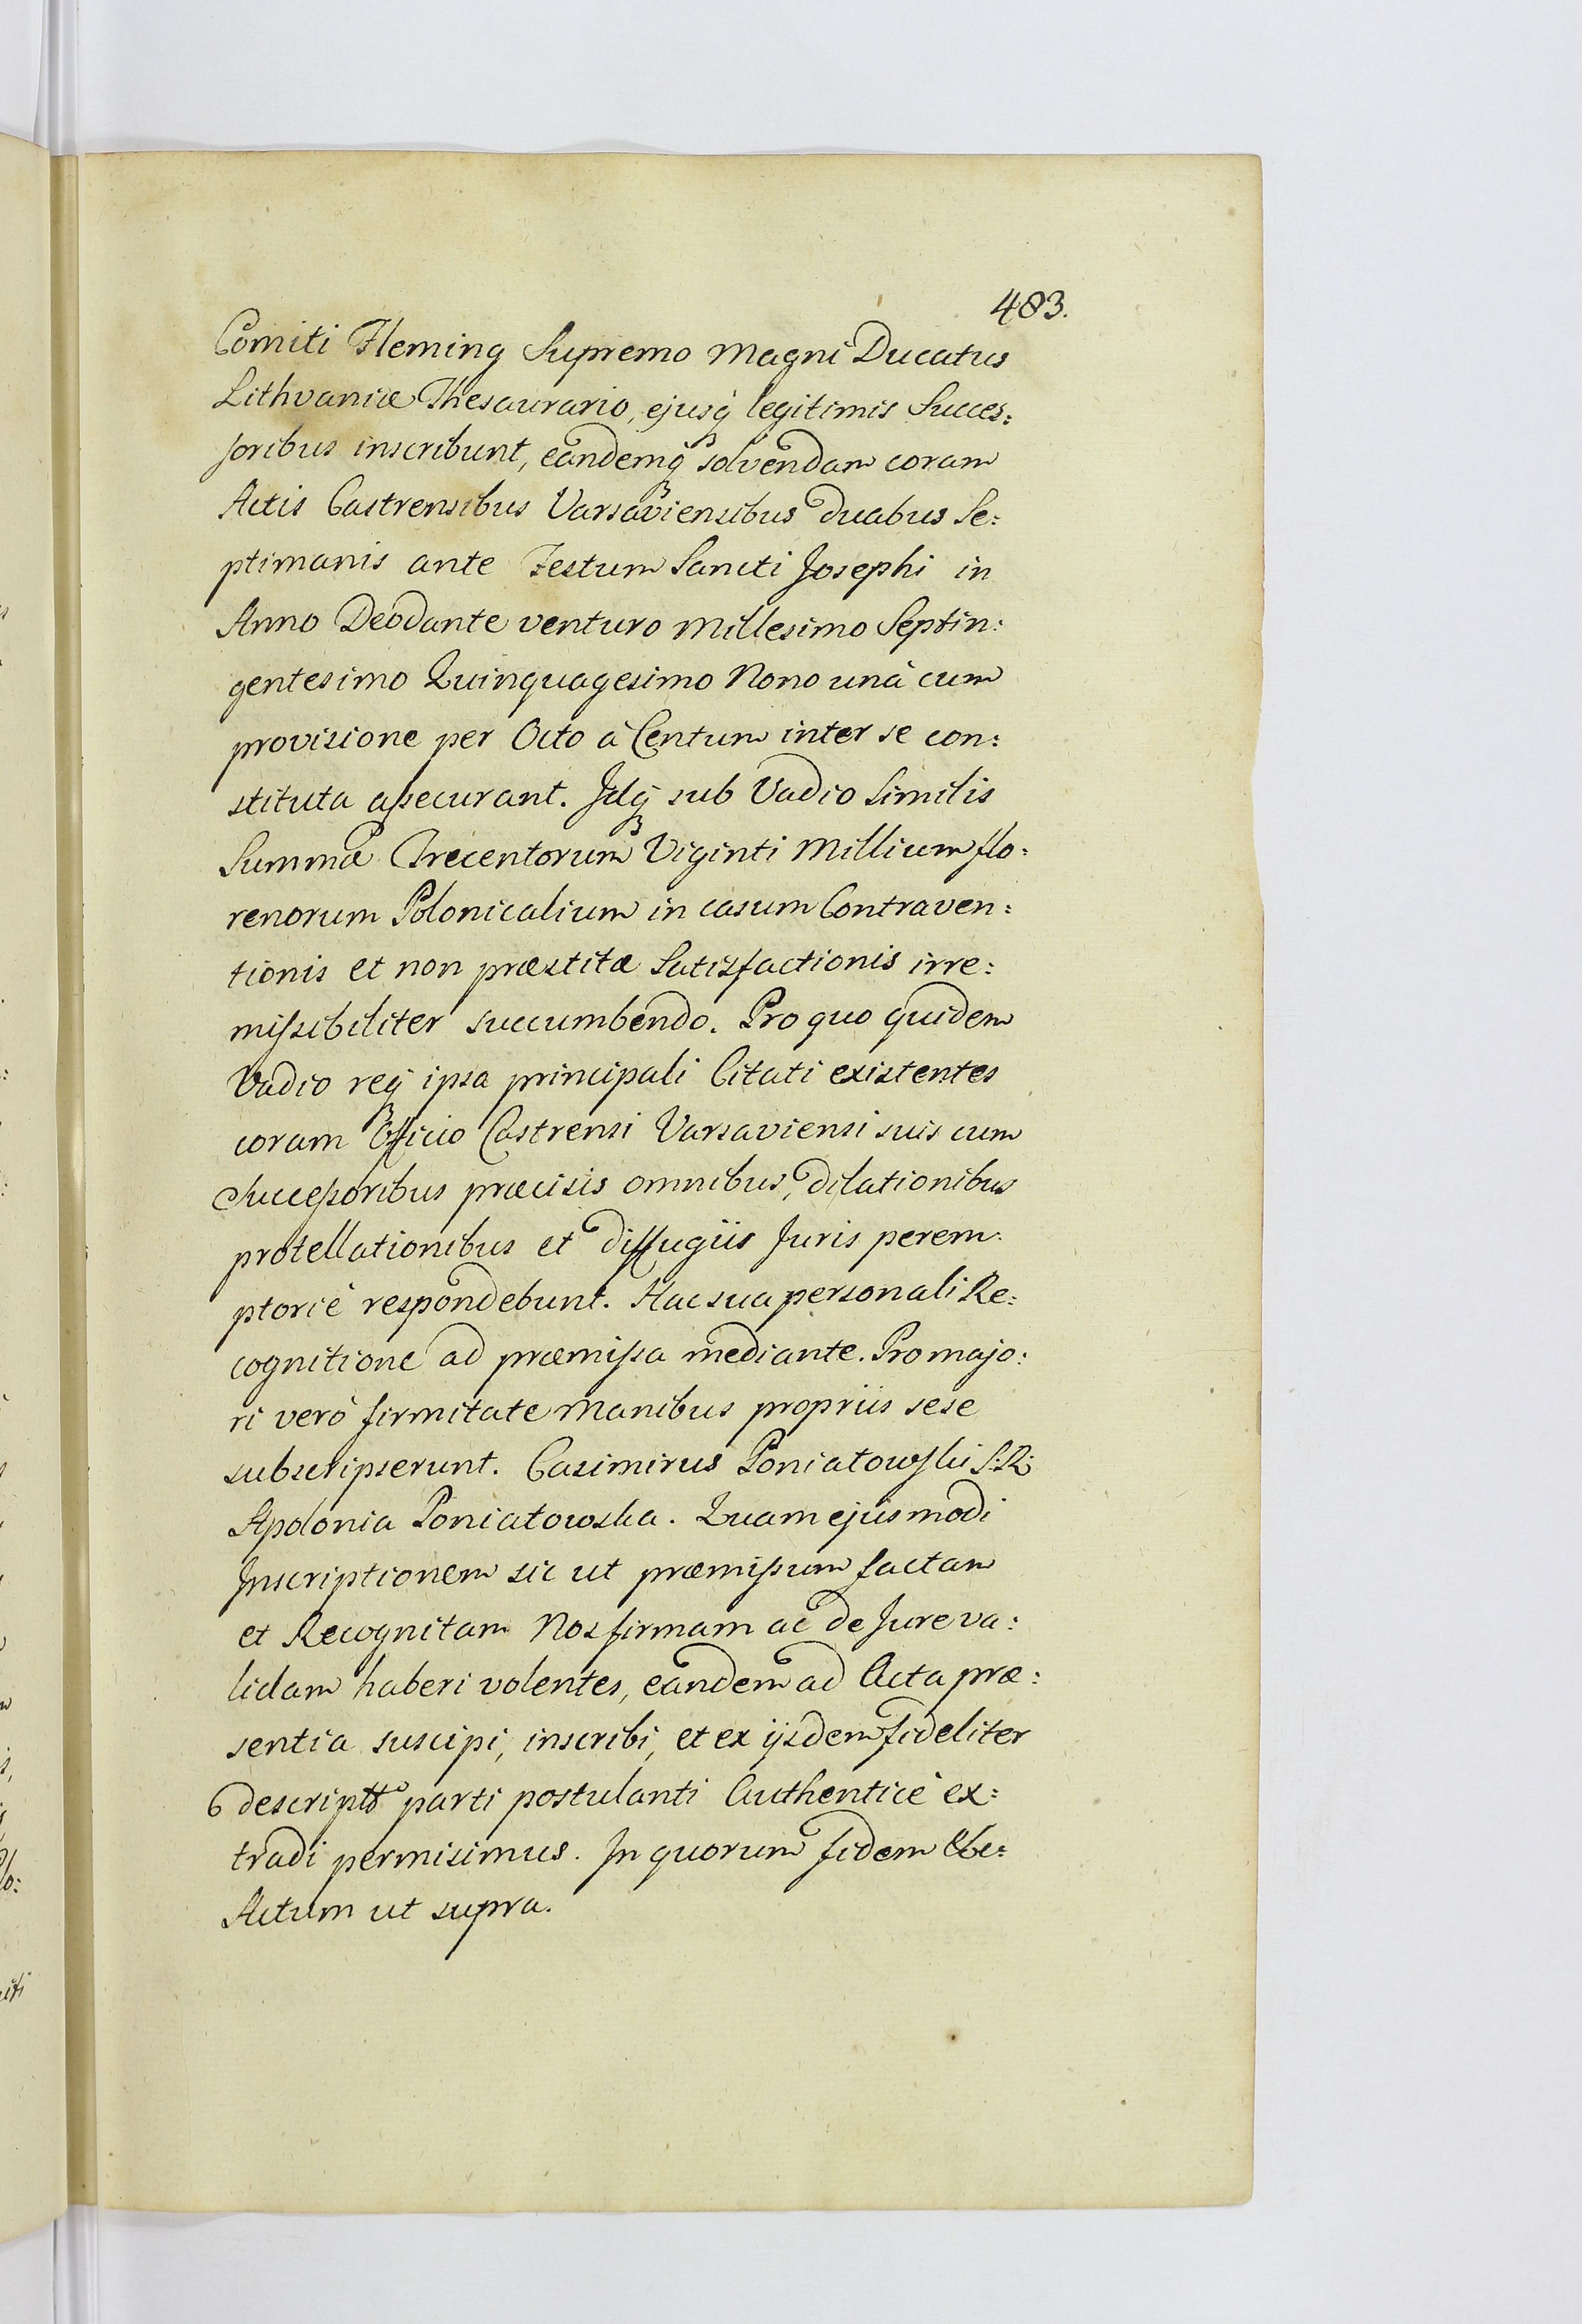 483.
Comiti Fleming Supremo Magni Ducatus
Lithvaniæ Thesaurario, ejusq́ legitimis Succes:
soribus inscribunt, eandemq́ solvendam coram
Actis Castrensibus Varsaviensibus duabus Se:
ptimanis ante Festum Sancti Josephi in
Anno Deo dante venturo Millesimo Septin:
gentesimo Quinquagesimo Nono unà cum
provisione per Octo à Centum inter se con:
stituta assecurant. Idq́ sub Vadio Similis
Summæ Trecentorum Viginti Millium flo:
renorum Polonicalium in casum Contraven:
tionis et non præstitæ Satisfactionis irre:
missibiliter succumbendo. Pro quo quidem
Vadio req́ ipsa principali Citati existentes
coram Officio Castrensi Varsaviensi suis cum
Successoribus præcisis omnibus, dilationibus
protellationibus et diffugiis Juris perem:
ptoriè respondebunt. Hac sua personali Re:
cognitione ad præmissa mediante. Pro majo:
ri verò firmitate Manibus propriis sese
subscripserunt. Casimirus Poniatowski S:R:
Apolonia Poniatowska. Quam ejusmodi
Inscriptionem sic ut præmissum factam
et Recognitam Nos firmam ac de Jure va:
lidam haberi volentes, eandem ad Acta præ:
sentia suscipi, inscribi, et ex ijsdem fideliter
parti postulanti Authenticè ex:
tradi permisimus. In quorum fidem
Actum ut supra.